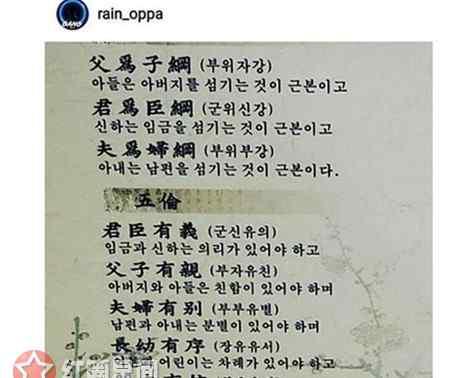 rain_oppa
父爲子綱 (부위자강)
아들은 아버지를 섬기는 것이 근본이고
君爲臣綱 (군위신강)
신하는 임금을 섬기는 것이 근본이고
夫爲婦綱 (부위부강)
아내는 남편을 섬기는 것이 근본이다.
五倫
君臣有義 (군신유의)
임금과 신하는 의리가 있어야 하고
父子有親 (부자유친)
아버지와 아들은 친함이 있어야 하며
夫婦有別 (부부유별)
남편과 아내는 분별이 있어야 하며
長幼有序 (장유유서)
어린이는 차례가 있어야 하고